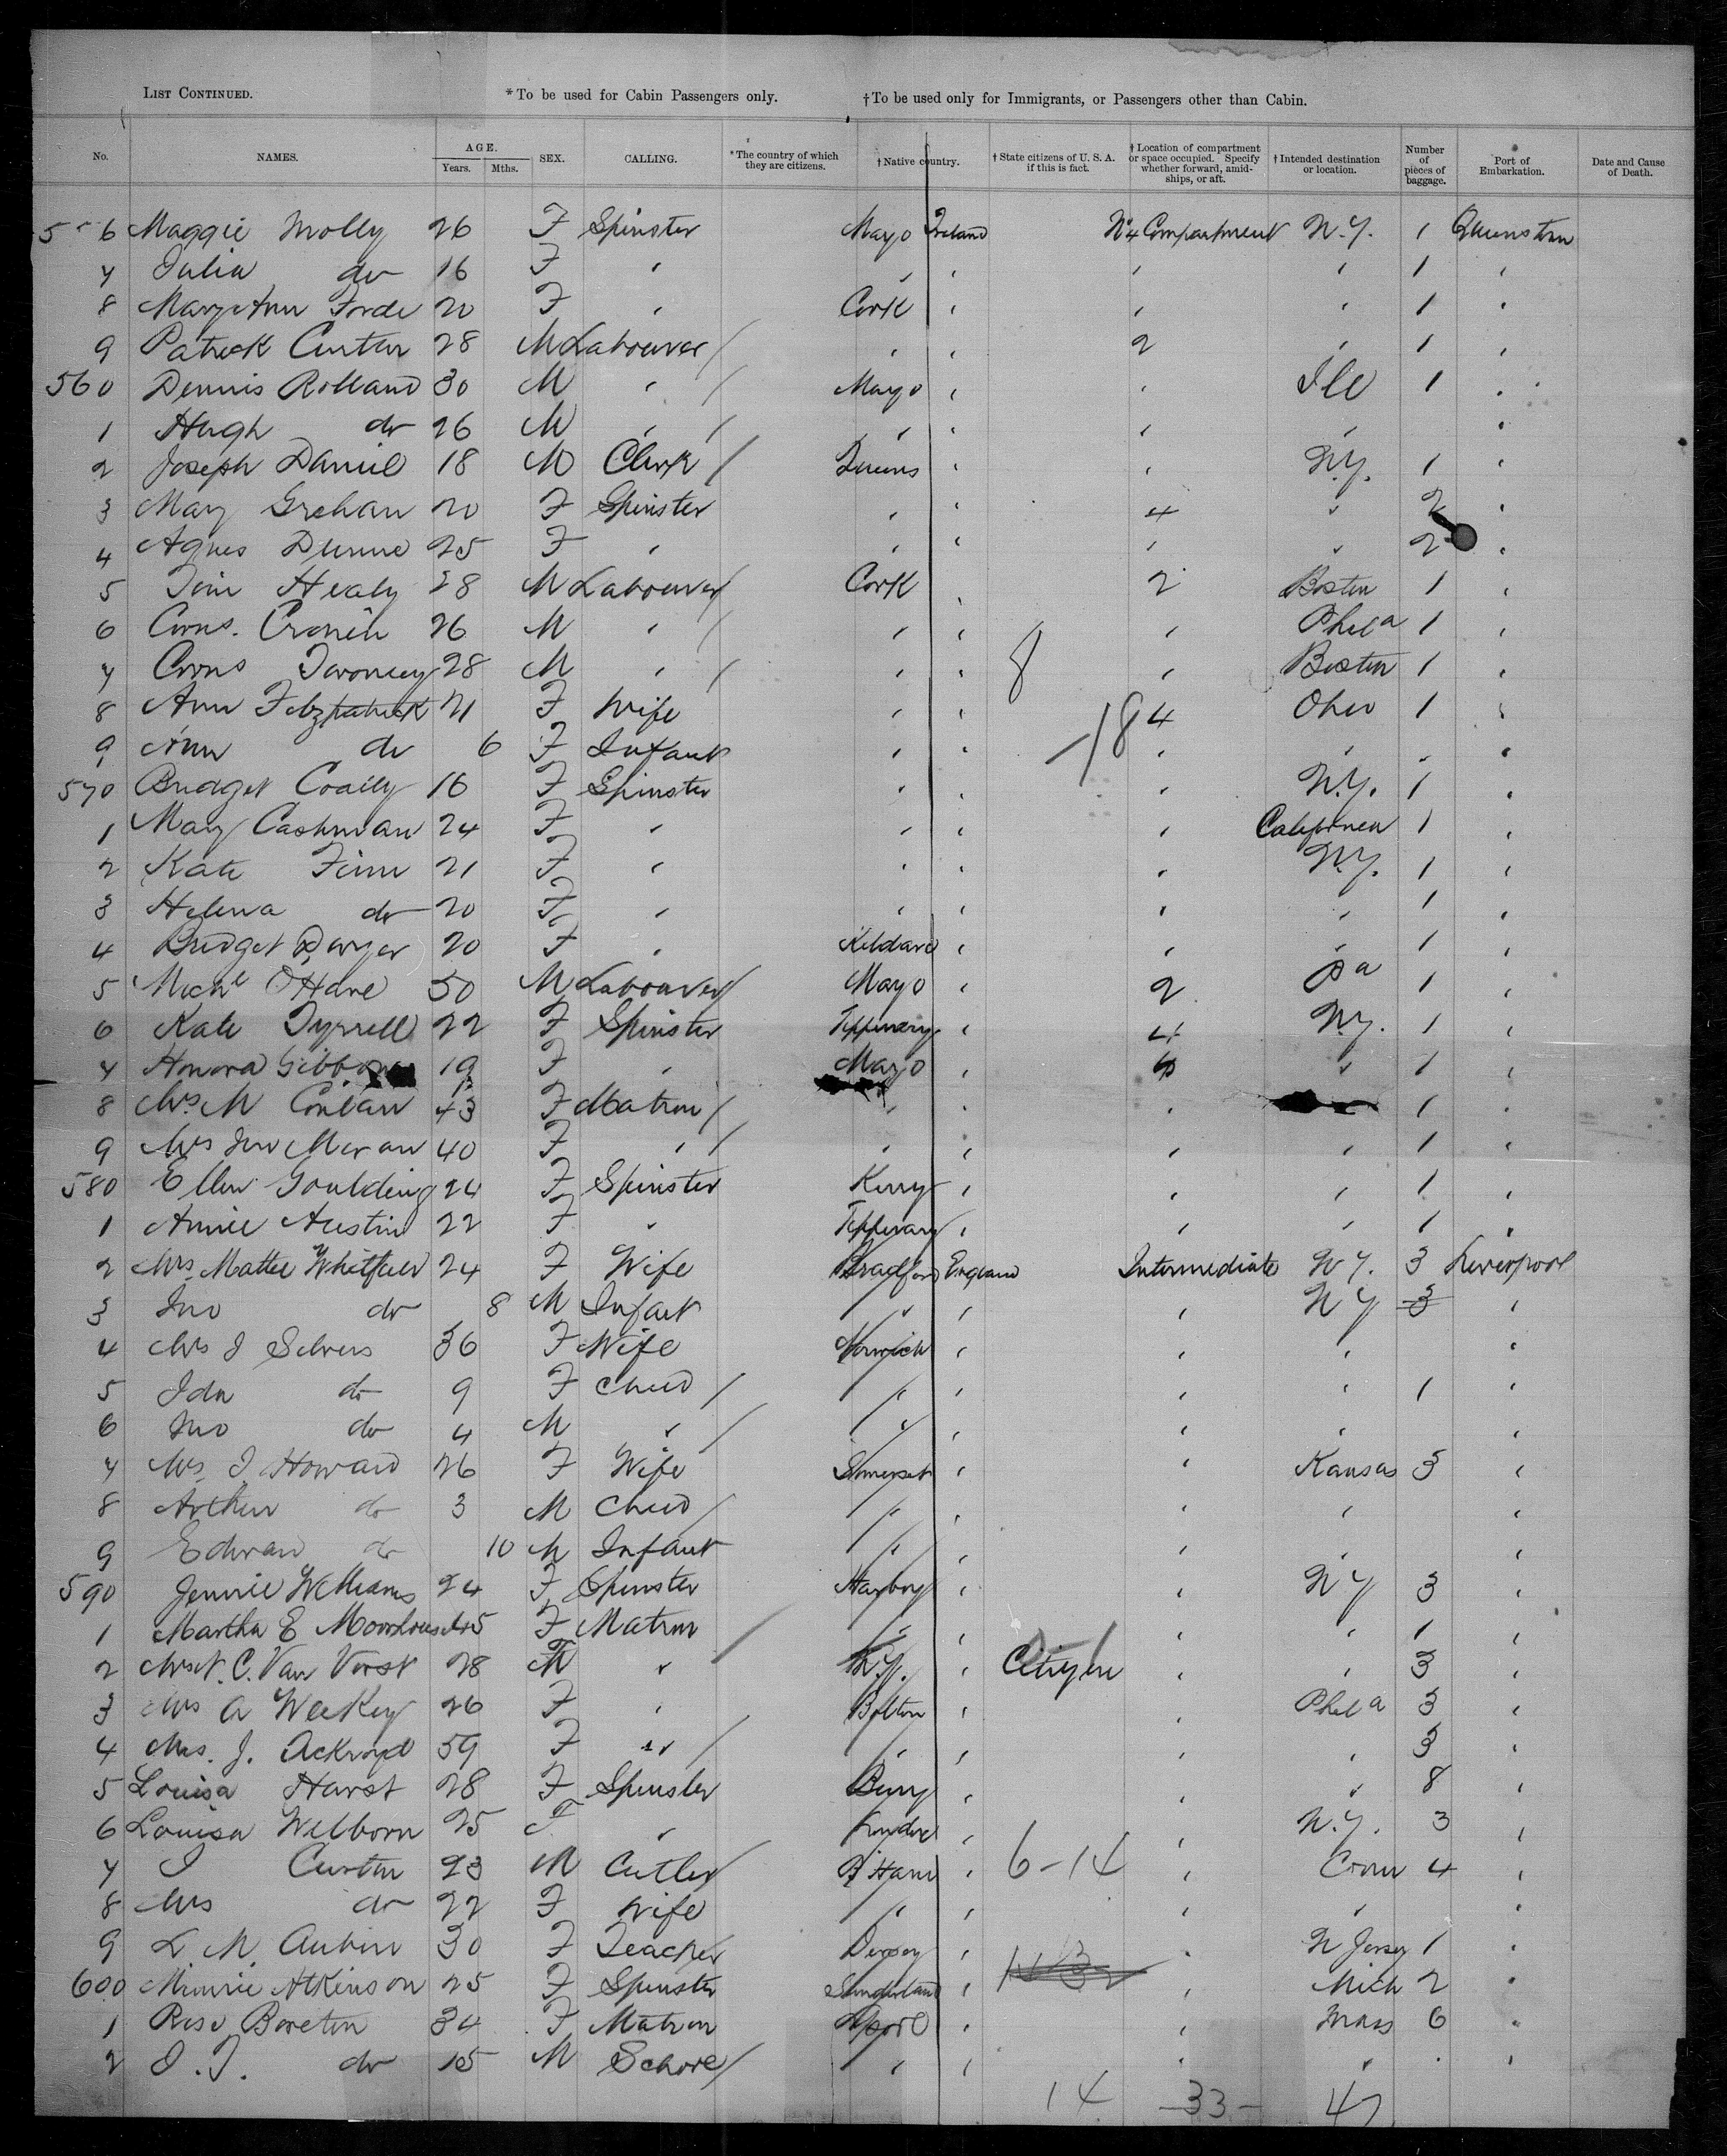 LIST CONTINUED. *To be used for Cabin Passengers only. †To be used only for Immigrants, or Passengers other than Cabin.
No. NAMES. AGE. Years. Mths. SEX. CALLING. *The country of which they are citizens. †Native country. †State citizens of U. S. A. if this is fact. †Location of compartment or space occupied. Specify whether forward, amidships, or aft. †Intended destination or location. Number of pieces of baggage. Port of Embarkation. Date and Cause of Death.
556 Maggie Molly 26 F Spinster Mayo Ireland No 4 Compartment N.Y. 1 Queenstown
7 Julia do 16 F " " " " " 1 "
8 Mary Ann Forde 20 F " Cork " " " 1 "
9 Patrick 28 M Labourer / " " 2 " 1 "
560 Dennis 30 M " / Mayo " " Ill 1 "
1 Hugh do 26 M " / " " " " "
2 Joseph Daniel 18 M Clerk / Queens " " N.Y. 1 "
3 Mary Grehan 20 F Spinster " " 4 " 2 "
4 Agnes Dunne 25 F " " " " " 2 "
5 Tim Healy 28 M Labourer / Cork " 2 Boston 1 "
6 Corns. Cronin 26 M " / " " " Phila 1 "
7 Corns Twomey 28 M " / " " 8 " Boston 1 "
8 Ann Fitzpatrick 21 F Wife " " 18 4 Ohio 1 "
9 Ann do 6 F Infant " " " " " "
570 Bridget 16 F Spinster " " " N.Y. 1 "
1 Mary Cashman 24 F " " " " California 1 "
2 Kate Finn 21 F " " " " N.Y. 1 "
3 Helena do 20 F " " " " " 1 "
4 Bridget Dwyer 20 F " Kildare " " " 1 "
5 Michl O'Hare 50 M Labourer / Mayo " 2 Pa 1 "
6 Kate Tyrrell 22 F Spinster Tipperary " 4 N.Y. 1 "
7 Honora Gibbons 19 F " Mayo " 4 " 1 "
8 Mrs M Conlan 43 F Matron / " " " " 1 "
9 Mrs Jno Moran 40 F " / " " " " 1 "
580 Ellen Goulding 24 F Spinster Kerry " " " 1 "
1 Annie Austin 22 F " Tipperary " " " 1 "
2 Mrs. Mattie Whitfield 24 F Wife Bradford England Intermediate N Y. 3 Liverpool
3 Jno do 8 M Infant " " " N Y 3 "
4 Mrs J 36 F Wife Norwich " " " "
5 Ida do 9 F Child / " " " " 1 "
6 Jno do 4 M " / " " " " "
7 Mrs. J. Howard 26 F Wife Somerset " " Kansas 3 "
8 Arthur do 3 M Child / " " " " "
9 Edward do 10 M Infant " " " " "
590 Jennie Williams 24 F Spinster " " N Y 3 "
1 Martha E Moorhouse 45 F Matron / " " " " 1 "
2 Mrs N. C. Van Vorst 28 F " N.Y. " Citizen " " 3 "
3 Mrs A 26 F " Bolton " " Phila 3 "
4 Mrs. J. Ackroyd 59 F " / " " " " 3 "
5 Louisa Hurst 28 F Spinster Bury " " " 8 "
6 Louisa Welborn 25 F " " " N.Y. 3 "
7 J 23 M Cutler / B'Ham " 6-14 " Conn 4 "
8 Mrs do 22 F Wife " " " " "
9 L M. Aubin 30 F Teacher " " N Jersey 1 "
600 Minnie Atkinson 25 F Spinster Sunderland " " Mich 2 "
1 Rose Boreton 34 F Matron " " Mass 6 "
2 J. T. do 15 M School / " " " " "
14 33 - 47